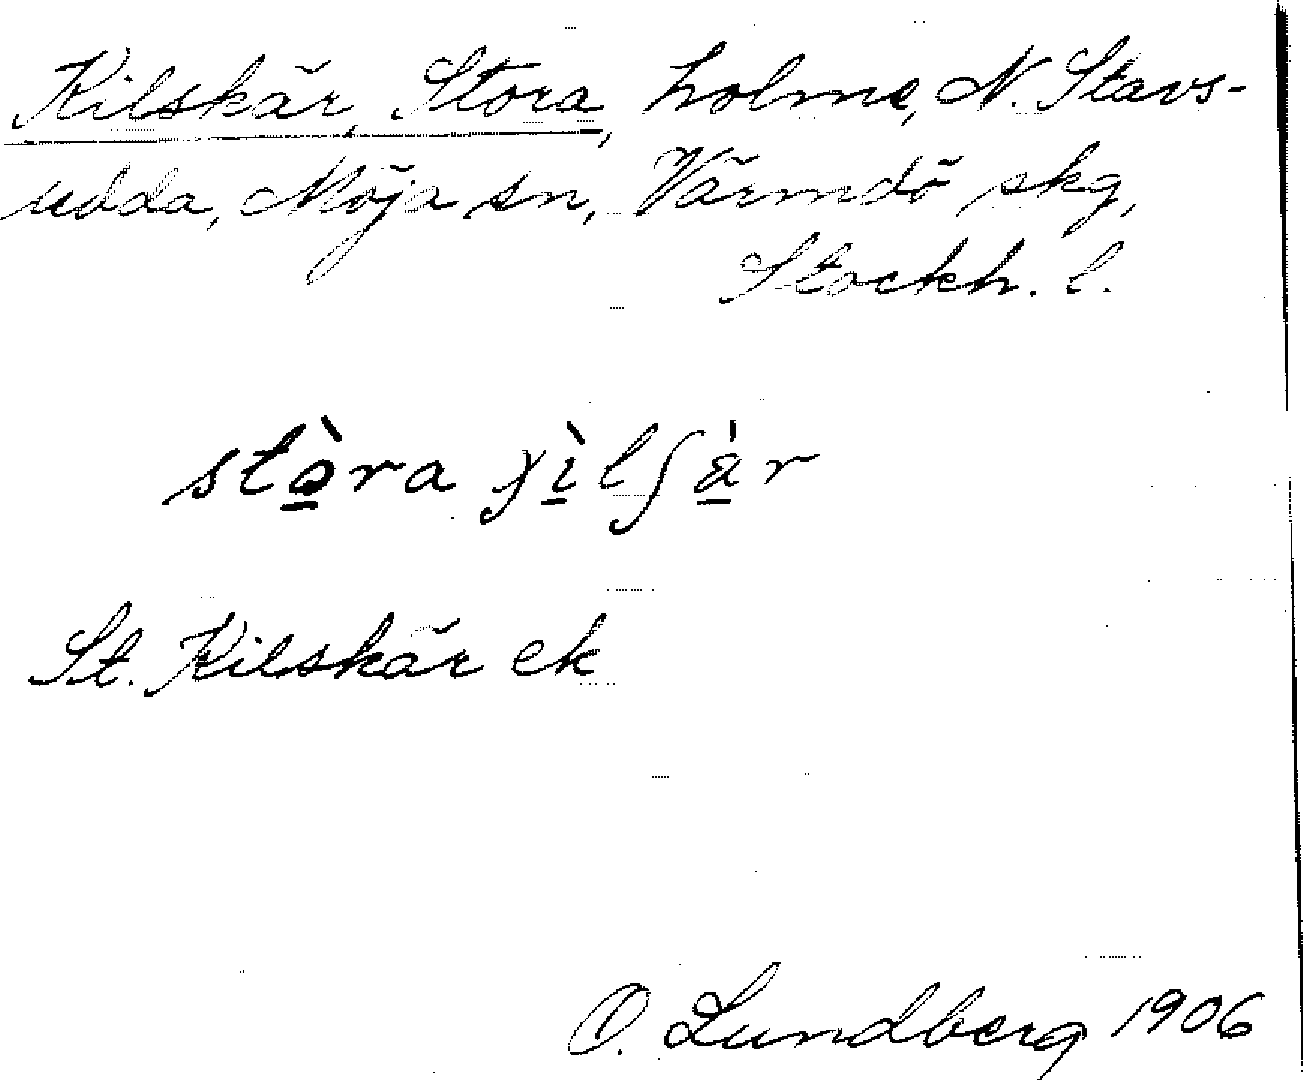 Kilskär, Stora, holme, N. Stavs-
udda, Möja sn, Värmdö skg,
Stockh. l.
stò̱ra ɣì̱lʃà̱r
St. Kilskär ek
O. Lundberg 1906